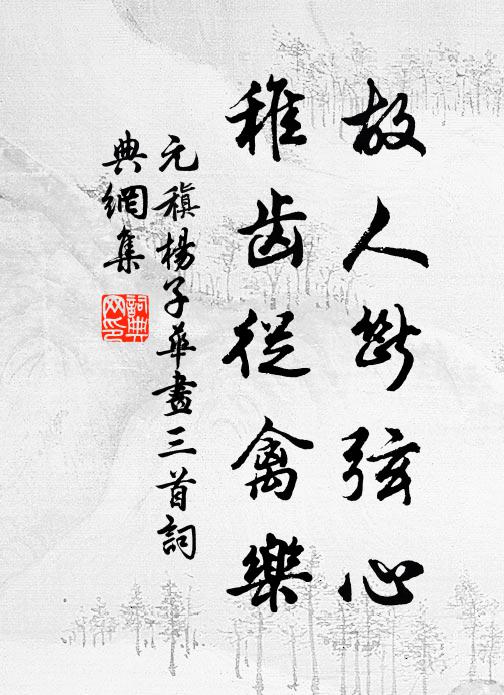 故人斷弦心
稚齒從禽樂
元稹楊子華畫三首詞
典網集
詞典
网印